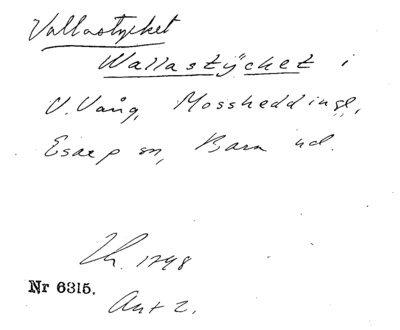 Vallastycket
Wallastÿcket i
V. Vång, Mossheddinge,
Esarp sn, Bara hd.
Lh. 1748
Nr 6315.
Akt 2.